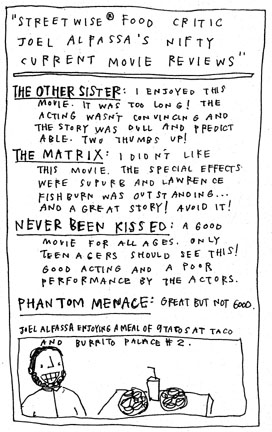 "STREETWISE® FOOD CRITIC
JOEL ALPASSA'S NIFTY
CURRENT MOVIE REVIEWS"
THE OTHER SISTER: I ENJOYED THIS
MOVIE. IT WAS TOO LONG! THE
ACTING WASN'T CONVINCING AND
THE STORY WAS DULL AND PREDICT
ABLE. TWO THUMBS UP!
THE MATRIX: I DIDN'T LIKE
THIS MOVIE. THE SPECIAL EFFECTS
WERE SUPURB AND LAWRENCE
FISHBURN WAS OUTSTANDING...
AND A GREAT STORY! AVOID IT!
NEVER BEEN KISSED: A GOOD
MOVIE FOR ALL AGES. ONLY
TEENAGERS SHOULD SEE THIS!
GOOD ACTING AND A POOR
PERFORMANCE BY THE ACTORS.
PHANTOM MENACE: GREAT BUT NOT GOOD.
JOEL ALPASSA ENJOYING A MEAL OF 9 TATOS AT TACO
AND BURRITO PALACE #2.